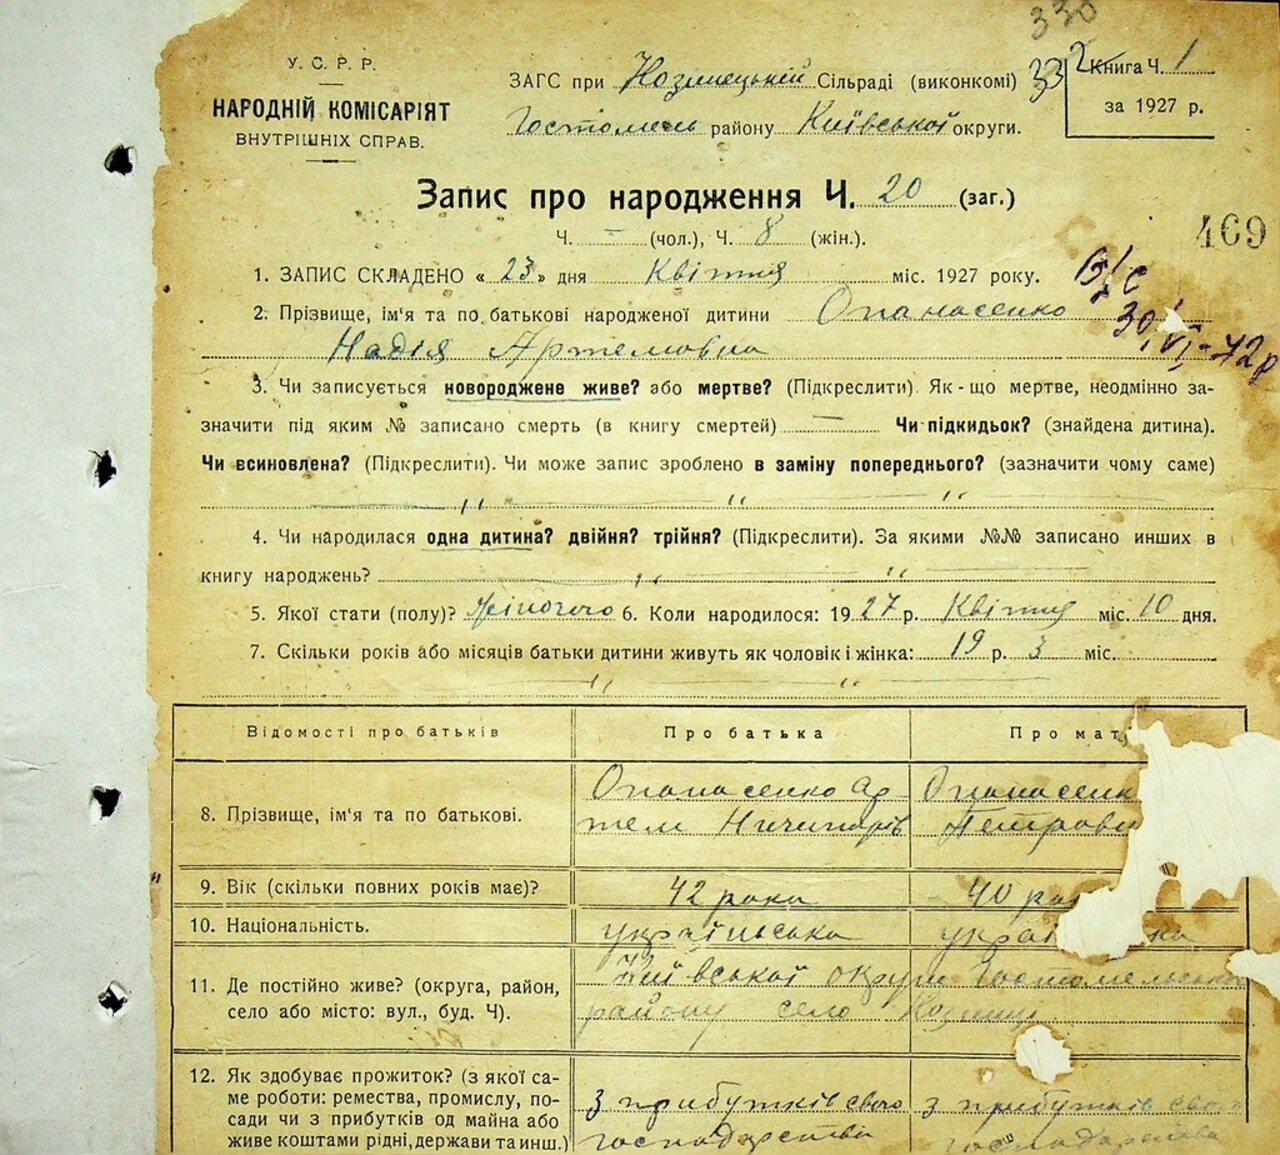 330
У. С. Р. Р.
НАРОДНІЙ КОМІСАРІЯТ
ВНУТРІШНІХ СПРАВ.
ЗАГС при Козинецькій Сільраді (виконкомі)
Гостомель району Київської округи.
332
Книга Ч. 1
за 1927 р.
Запис про народження Ч. 20 (заг.)
Ч. — (чол.), Ч. 8 (жін.).
469
1. ЗАПИС СКЛАДЕНО « 23 » дня Квітня міс. 1927 року.
2. Прізвище, ім'я та по батькові народженої дитини Опанасенко
Надія Артемовна
30/VI-72р
3. Чи записується новороджене живе? або мертве? (Підкреслити). Як-що мертве, неодмінно за-
значити під яким № записано смерть (в книгу смертей) — Чи підкидьок? (знайдена дитина).
Чи всиновлена? (Підкреслити). Чи може запис зроблено в заміну попереднього? (зазначити чому саме)
— " — " — " —
4. Чи народилася одна дитина? двійня? трійня? (Підкреслити). За якими №№ записано инших в
книгу народжень? — " — " —
5. Якої стати (полу)? жіночого 6. Коли народилося: 1927 р. Квітня міс. 10 дня.
7. Скільки років або місяців батьки дитини живуть як чоловік і жінка: 19 р. 3 міс.
— " — " —
Відомості про батьків Про батька Про мат
8. Прізвище, ім'я та по батькові.
Опанасенко Ар-
тем Ничипорів
Опанасенк
Петрови
9. Вік (скільки повних років має)? 42 роки 40 ро
10. Національність. українська украї нка
11. Де постійно живе? (округа, район,
село або місто: вул., буд. Ч).
Київської округи Гостомельсько
району село Козинці
12. Як здобуває прожиток? (з якої са-
ме роботи: ремества, промислу, по-
сади чи з прибутків од майна або
живе коштами рідні, держави та инш.)
з прибутків свого
господарства
з прибутків свого
господарства